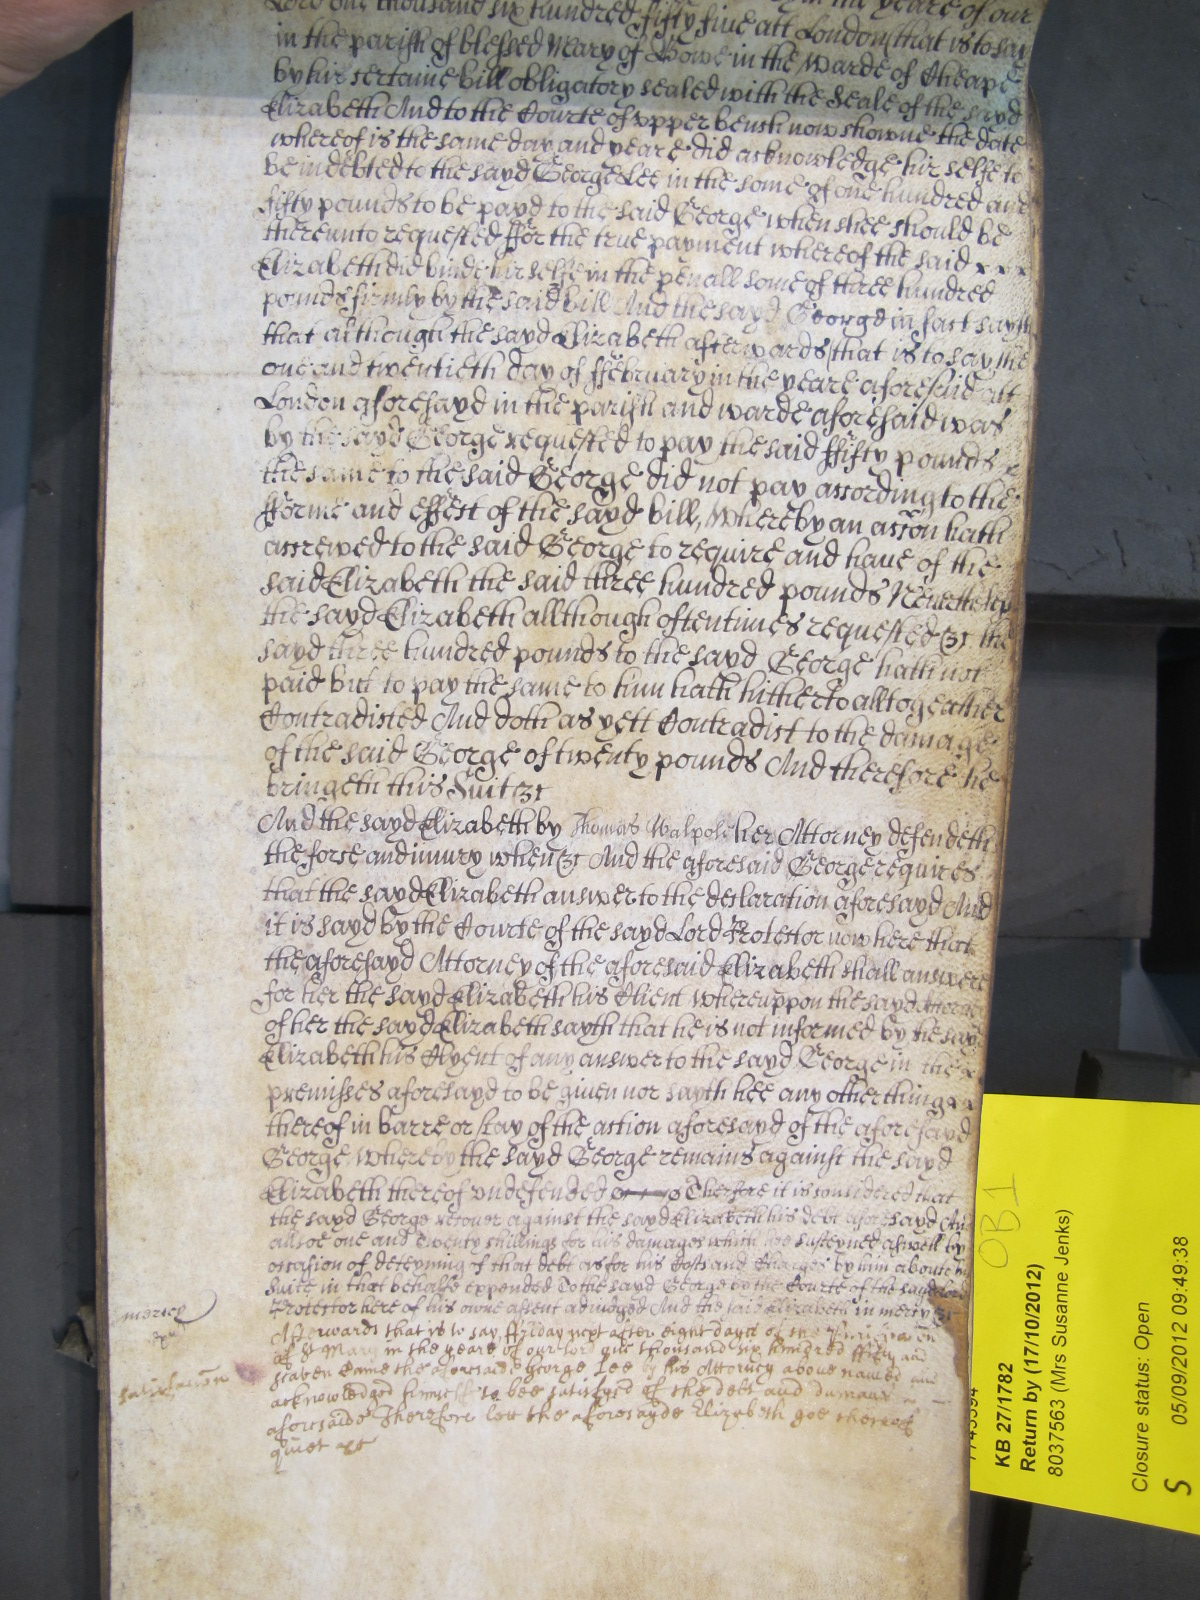 Lord one thousand six hundred fifty five att London (that is to say
in the parish of blessed Mary of Bowe in the Warde of Cheape
by hir certaine bill obligatory sealed with the Seale of the sayd
Elizabeth And to the Courte of upper bench now showne the date
whereof is the same day and yeare did acknowledge hir selfe to
be indebted to the sayd George Lee in the some of one hundred and
fifty pounds to be payd to the said George when shee should be
thereunto requested ffor the true payment whereof the said
Elizabeth did binde hir selfe in the penall some of three hundred
pounds firmly by the said bill And the sayd George in fact sayth
that although the sayd Elizabeth afterwards (that is to say the
one and twentieth day of ffebruary in the yeare aforesaid att
London aforesayd in the parish and warde aforesaid was
by the sayd George requested to pay the said ffifty pounds
the same to the said George did not pay according to the
fforme and effect of the sayd bill, Whereby an accon hath
accrewed to the said George to require and have of the
said Elizabeth the said three hundred pounds Neverthelesse
the sayd Elizabeth allthough oftentimes requested &c the
sayd three hundred pounds to the sayd George hath not
paid but to pay the same to him hath hitherto alltogeather
Contradicted And doth as yett Contradict to the damage
of the said George of twenty pounds And therefore he
bringeth this Suit &c
And the sayd Elizabeth by Thomas Walpole her Attorney defendeth
the force and iniury when &c And the aforesaid George requires
that the sayd Elizabeth answer to the declaration aforesayd And
it is sayd by the Courte of the sayd Lord Protector now here that
the aforesayd Attorney of the aforesaid Elizabeth shall answere
for her the sayd Elizabeth his Client Whereuppon the sayd Attorney
of her the sayd Elizabeth sayth that he is not informed by the sayd
Elizabeth his Clyent of any answer to the sayd George in the
premisses aforesayd to be given nor sayth hee any other thing
thereof in barre or stay of the action aforesayd of the aforesayd
George Whereby the sayd George remains against the sayd
Elizabeth thereof undefended Therfore it is considered that
the sayd George recover against the sayd Elizabeth his debt aforesayd And
alsoe one and Twenty shillings for his damages which hee susteyned aswell by
occasion of deteyning of that debt as for his Costs and Charges by him aboute his
suite in that behalfe expended To the sayd George by the Courte of the sayd Lord
Protector here of his owne assent adiudged And the said Elizabeth in mercy &c
mercy
Afterwards that is to say ffryday next after eight dayes of the Purificacon
of St Mary in the yeare of our lord one thousand six hundred fifty and
seaven Came the aforesaide George Lee by his Attorney above named and
satisfaccon
acknowledged himselfe to bee satisfyed of the debt and damages
aforesaide Therefore lett the aforesayde Elizabeth goe thereof
quiet &c
OB1
KB 27/1782
Return by (17/10/2012)
8037563 (Mrs Susanne Jenks)
Closure status: Open
05/09/2012 09:49:38
S